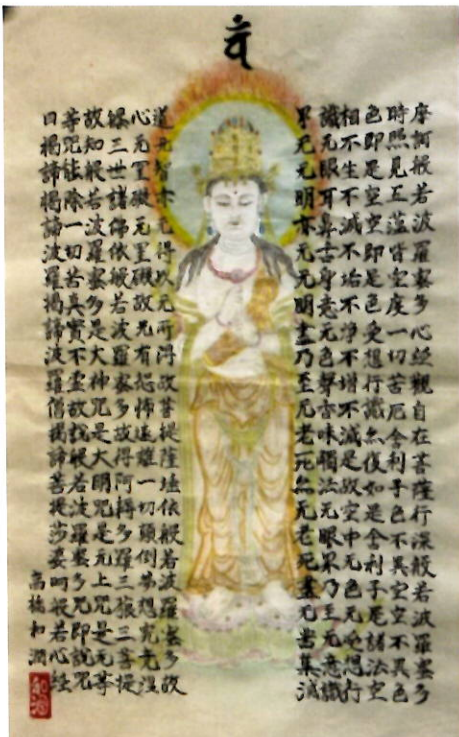 摩訶般若波羅蜜多心経觀自在菩薩行深般若波羅蜜多
時照見五蕴皆空度一切苦厄舍利子色不異空空不異色
色即是空空即是色受想行識亦復如是舍利子是諸法空
相不生不滅不垢不浄不増不減是故空中无色无受想行
識无眼耳鼻舌身意无色聲香味觸法无眼界乃至无意識
界无无明亦无无明盡乃至无老死亦无老死盡无苦集滅
道无智亦无得以无所得故菩提薩埵依般若波羅蜜多故
心无罣礙无罣礙故无有恐怖遠離一切顛倒夢想究竟涅
槃三世諸佛依般若波羅蜜多故得阿耨多羅三藐三菩提
故知般若波羅蜜多是大神咒是大明咒是无上咒是无等
等咒能除一切苦真實不虚故說般若波羅蜜多咒即說咒
曰揭諦揭諦波羅揭諦波羅僧揭諦菩提莎婆呵般若心経
高橋和潤